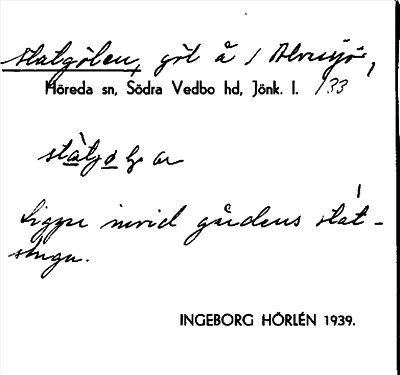 Slatgölen, göl å 1 Alvesjö,
Höreda sn, Södra Vedbo hd, Jönk. l. 133
Ligger invid gårdens slåt-
stuga.
INGEBORG HÖRLÉN 1939.